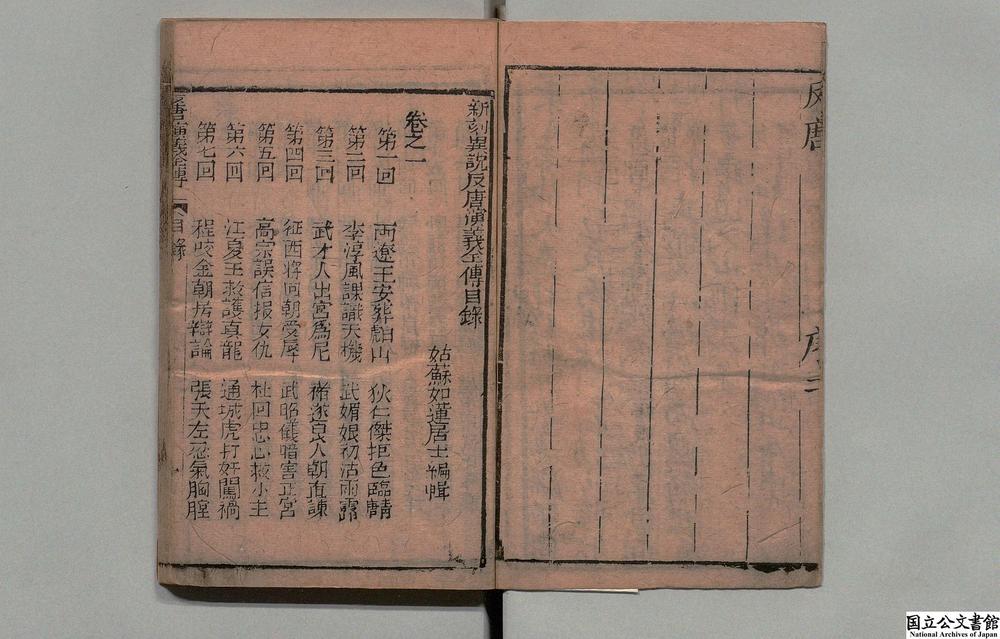 反唐
序二
新刻異說反唐演義全傳目錄
姑蘇如蓮居士編輯
卷之一
第一回 兩遼王安葬白山 狄仁傑拒色臨
第二回 李淳風課識天機 武媚娘初沾雨露
第三回 武才人出宮爲尼 褚遂良入朝直諫
第四回 征西將回朝受辱 武昭儀暗害正宮
第五回 高宗誤信报女仇 杜回忠心救小主
第六回 江夏王救護真龍 通城虎打奸闖禍
第七回 程咬金朝房辯論 張天左忿氣胸膛
反唐演義全傳 目錄
国立公文書館
National Archives of Japan